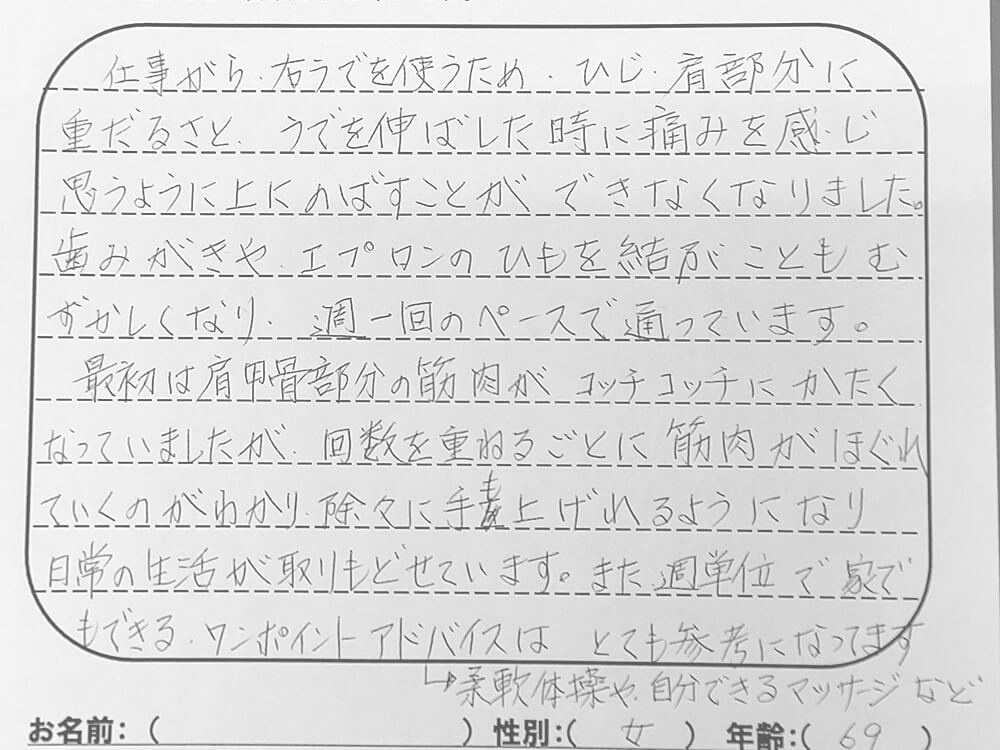 仕事がら、右うでを使うため、ひじ、肩部分に
重だるさと、うでを伸ばした時に痛みを感じ
思うように上にのばすことができなくなりました。
歯みがきや、エプロンのひもを結ぶこともむ
ずかしくなり、週一回のペースで通っています。
最初は肩甲骨部分の筋肉がコッチコッチにかたく
なっていましたが、回数を重ねるごとに筋肉がほぐれ
ていくのがわかり、除々に手を上げれるようになり
日常の生活が取りもどせています。また、週単位で家で
もできる、ワンポイントアドバイスは とても参考になってます
↳柔軟体操や、自分できるマッサージなど
お名前:( ) 性別:( 女 ) 年齢:( 69 )